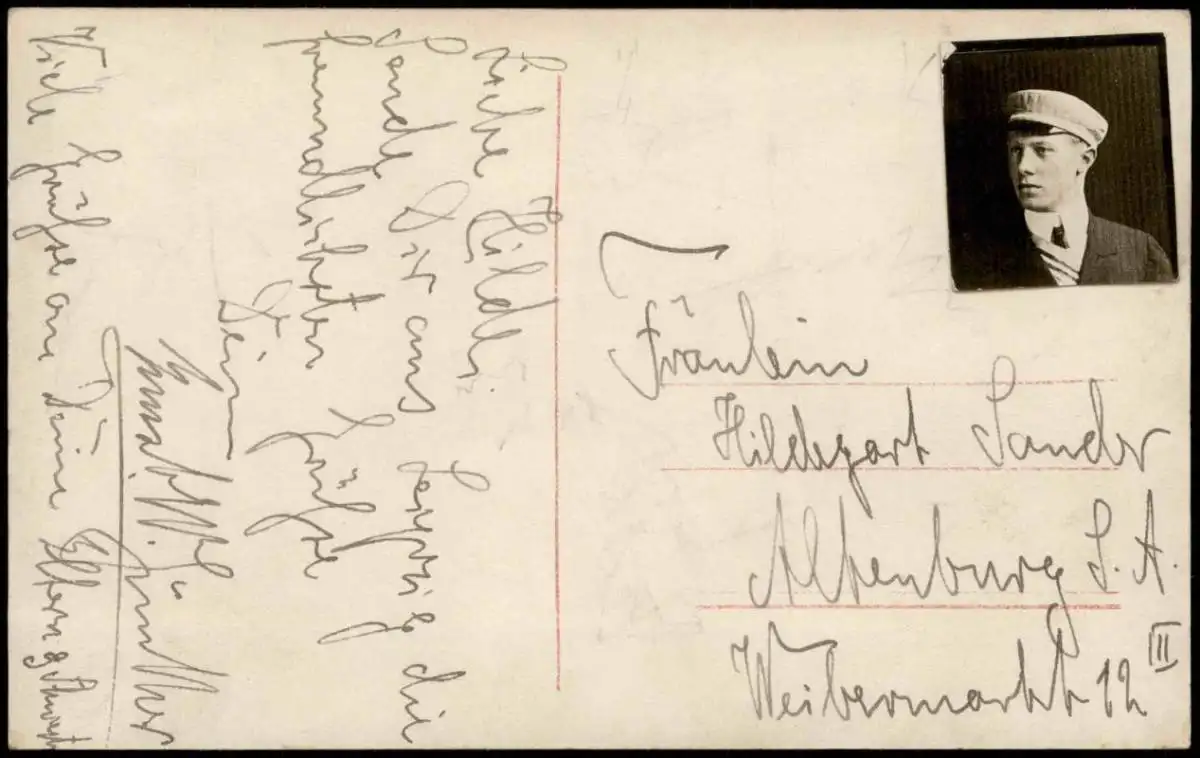 Liebe Hilde!
Sende Dir aus Leipzig die
freundlichsten Grüße
Dein
Günther
Viele Grüße an Deine Eltern
Fräulein
Hildegart Sander
Altenburg S. A.
Weibermarkt 12 III